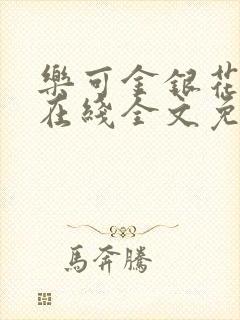 樂可金銀花
在綫全文免
馬奔騰